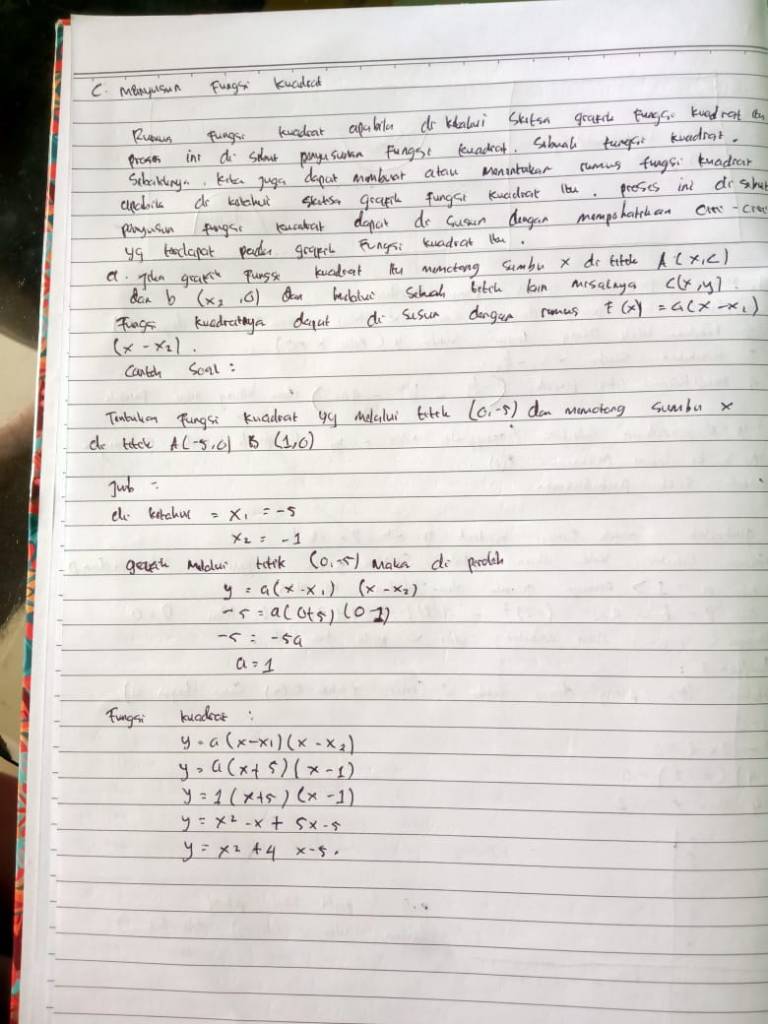 C. Menyusun Fungsi Kuadrat
Rumus fungsi kuadrat apabila di ketahui sketsa grafik fungsi kuadrat itu
proses ini di sebut penyusunan fungsi kuadrat. Sebuah fungsi kuadrat.
Sebaliknya, kita juga dapat membuat atau menentukan rumus fungsi kuadrat
apabila di ketahui sketsa grafik fungsi kuadrat itu. proses ini di sebut
penyusun fungsi kuadrat dapat di susun dengan memperhatikan ciri-ciri
yg terdapat pada grafik fungsi kuadrat itu.
a. Jika grafik fungsi kuadrat itu memotong sumbu x di titik A(x,c)
dan b (x2,0) dan melalui sebuah titik lain misalnya C(x,y)
Fungsi kuadratnya dapat di susun dengan rumus F(x) = a(x-x1)
(x-x2).
Contoh Soal :
Tentukan Fungsi kuadrat yg melalui titik (0,-5) dan memotong sumbu x
di titik A(-5,0) B (1,0)
Jwb =
di ketahui = x1 = -5
x2 = -1
grafik melalui titik (0,-5) Maka di peroleh
y = a(x-x1) (x-x2)
-5 = a(0+5) (0-1)
-5 = -5a
a = 1
Fungsi kuadrat :
y = a(x-x1)(x-x2)
y = a(x+5)(x-1)
y = 1(x+5)(x-1)
y = x2 -x + 5x-5
y = x2 +4 x-5.